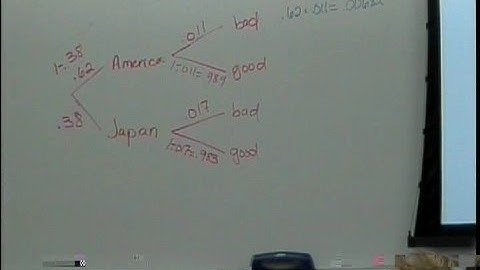 .011 bad
.62 · .011 = .00682
1-.38
.62 America
1-.011=.989 good
.017 bad
.38 Japan
1-.017=.983 good